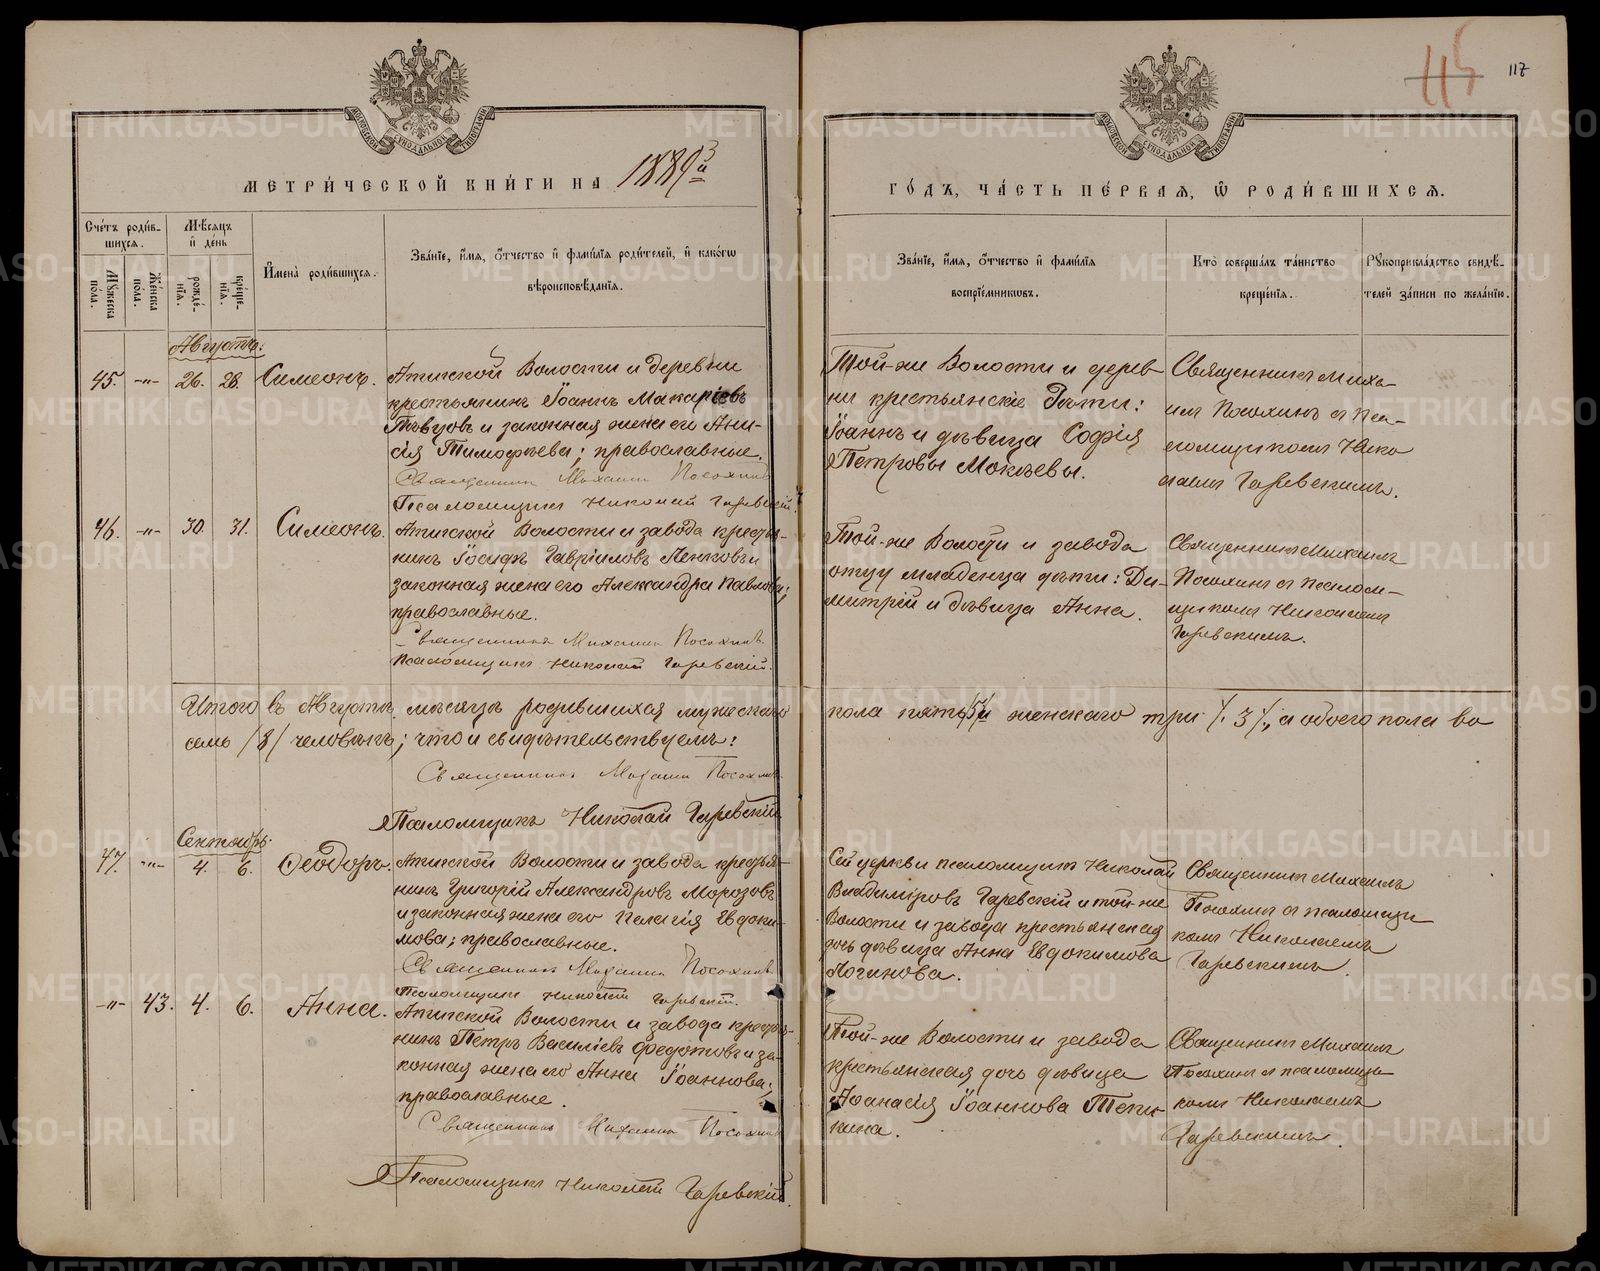 115
117
МОСКОВСКОЙ СѴНОДАЛЬНОЙ ТИПОГРАФІИ
МОСКОВСКОЙ СѴНОДАЛЬНОЙ ТИПОГРАФІИ
МЕТРИ́ЧЕСКОЙ КНИ́ГИ НА 1893й
ГО́ДЪ, ЧА́СТЬ ПЕ́РВАЯ, Ѽ РОДИ́ВШИХСѦ.
Сче́тъ роди́в-
шихсѧ.
Мꙋ́жеска по́ла.
Же́нска по́ла.
Мѣ́сѧцъ и҆ де́нь
рожде́-нїѧ.
креще́-нїѧ.
И҆мена̀ роди́вшихсѧ.
Зва́нїе, и҆́мѧ, ѻ҆́тчество и҆ фамі́лїѧ роди́телей, и҆ како́гѡ
вѣроисповѣ́данїѧ.
Зва́нїе, и҆́мѧ, ѻ҆́тчество и҆ фамі́лїѧ
воспрїе́мникѡвъ.
Кто̀ соверша́лъ та́инство
креще́нїѧ.
Рꙋкоприкла́дство свидѣ́-
телей за́писи по жела́нїю.
Августъ.
45. -"- 26. 28. Симеонъ.
Атигской Волости и деревни
крестьянинъ Іоаннъ Макаріевъ
и законная жена его Ани-
сія Тимофѣева; православные.
Священникъ Михаилъ Посохинъ
Псаломщикъ Николай Гаревскій.
Той-же Волости и дерев-
ни крестьянскіе дѣти:
Іоаннъ и дѣвица Софія
Петровы Мокѣевы.
Священникъ Миха-
илъ Посохинъ съ пса-
ломщикомъ Нико
лаемъ Гаревскимъ.
46. -"- 30. 31. Симеонъ.
Атигской Волости и завода крестья-
нинъ Іосифъ Гавріиловъ Пенковъ и
законная жена его Александра Павлова;
православные.
Священникъ Михаилъ Посохинъ
Псаломщикъ Николай Гаревскій.
Той-же Волости и завода
отцу младенца дѣти: Ди-
митрій и дѣвица Анна.
Священникъ Михаилъ
Посохинъ съ псалом-
щикомъ Николаемъ
Гаревскимъ.
Итого въ Августѣ мѣсяцѣ родившихся мужескаго
пола пять /5/ и женскаго три /3/, а обоего пола во
семь /8/ человѣкъ; что и свидѣтельствуемъ:
Священникъ Михаилъ Посохинъ
Псаломщикъ Николай Гаревскій
Сентябрь.
47. -"- 4. 6. Ѳеодоръ.
Атигской Волости и завода крестья-
нинъ Григорій Александровъ Морозовъ
и законная жена его Пелагія Евдоки-
мова; православные.
Священникъ Михаилъ Посохинъ
Псаломщикъ Николай Гаревскій.
Сей церкви псаломщикъ Николай
Владиміровъ Гаревскій и той-же
Волости и завода крестьянская
дочь дѣвица Анна Евдокимова
Логинова.
Священникъ Михаилъ
Посохинъ съ псаломщи
комъ Николаемъ
Гаревскимъ.
-"- 43. 4. 6. Анна.
Атигской Волости и завода крестья-
нинъ Петръ Василіевъ Ѳедотовъ и за-
конная жена его Анна Іоаннова;
православные.
Священникъ Михаилъ Посохинъ
Псаломщикъ Николай Гаревскій
Той-же Волости и завода
крестьянская дочь дѣвица
Аѳанасія Іоаннова
Священникъ Михаилъ
Посохинъ съ псаломщи
комъ Николаемъ
Гаревскимъ.
METRIKI.GASO-URAL.RU